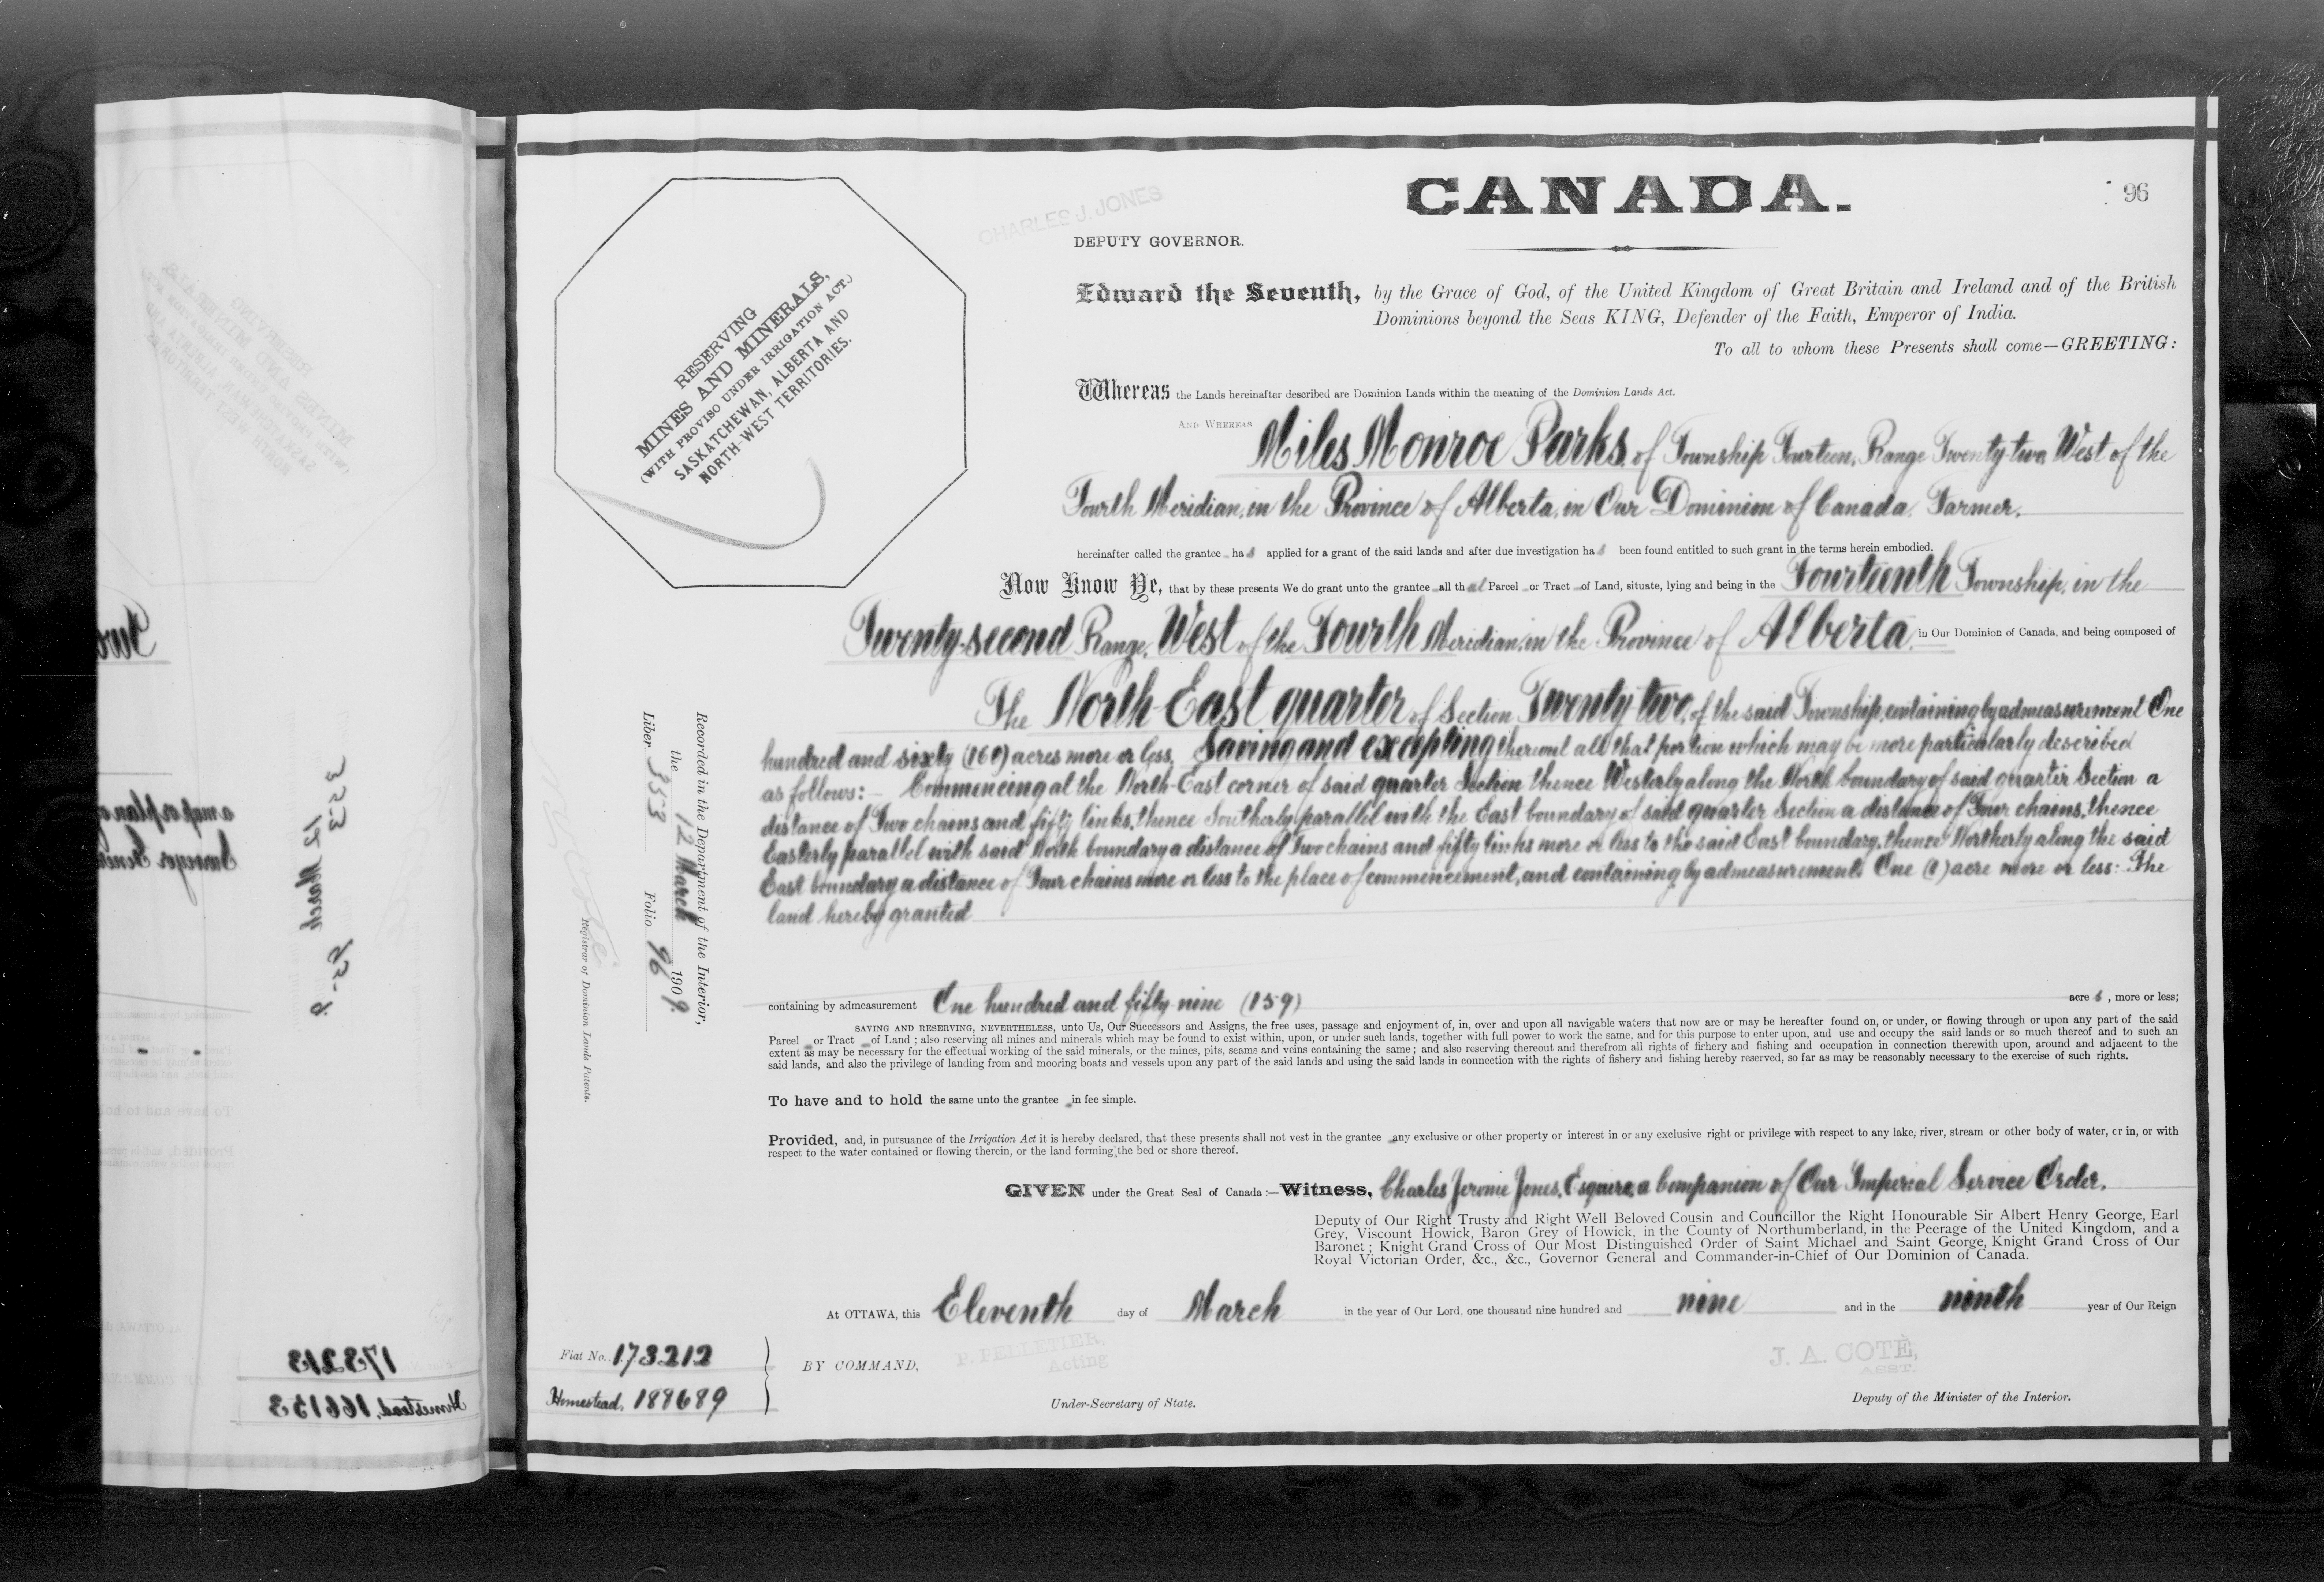 CANADA.
96
CHARLES J. JONES
DEPUTY GOVERNOR.
RESERVING
MINES AND MINERALS,
(WITH PROVISO UNDER IRRIGATION ACT.)
SASKATCHEWAN, ALBERTA AND
NORTH-WEST TERRITORIES.
Edward the Seventh, by the Grace of God, of the United Kingdom of Great Britain and Ireland and of the British
Dominions beyond the Seas KING, Defender of the Faith, Emperor of India.
To all to whom these Presents shall come—GREETING:
Whereas the Lands hereinafter described are Dominion Lands within the meaning of the Dominion Lands Act.
AND WHEREAS Miles Monroe Parks, of Township Fourteen, Range Twenty-two, West of the
Fourth Meridian, in the Province of Alberta, in Our Dominion of Canada, Farmer,
hereinafter called the grantee has applied for a grant of the said lands and after due investigation has been found entitled to such grant in the terms herein embodied.
Now Know Ye, that by these presents We do grant unto the grantee all that Parcel or Tract of Land, situate, lying and being in the Fourteenth Township, in the
Twenty-second Range, West of the Fourth Meridian, in the Province of Alberta, in Our Dominion of Canada, and being composed of
The North-East quarter of Section Twenty-two, of the said Township, containing by admeasurement One
hundred and sixty (160) acres more or less, Saving and excepting thereout all that portion which may be more particularly described
as follows:– Commencing at the North-East corner of said quarter Section thence Westerly along the North boundary of said quarter Section a
distance of Two chains and fifty links, thence Southerly parallel with the East boundary of said quarter Section a distance of Four chains, thence
Easterly parallel with said North boundary a distance of Two chains and fifty links more or less to the said East boundary, thence Northerly along the said
East boundary a distance of Four chains more or less to the place of commencement, and containing by admeasurement One (1) acre more or less: The
land hereby granted
containing by admeasurement One hundred and fifty-nine (159) acres, more or less;
SAVING AND RESERVING, NEVERTHELESS, unto Us, Our Successors and Assigns, the free uses, passage and enjoyment of, in, over and upon all navigable waters that now are or may be hereafter found on, or under, or flowing through or upon any part of the said
Parcel or Tract of Land; also reserving all mines and minerals which may be found to exist within, upon, or under such lands, together with full power to work the same, and for this purpose to enter upon, and use and occupy the said lands or so much thereof and to such an
extent as may be necessary for the effectual working of the said minerals, or the mines, pits, seams and veins containing the same; and also reserving thereout and therefrom all rights of fishery and fishing and occupation in connection therewith upon, around and adjacent to the
said lands, and also the privilege of landing from and mooring boats and vessels upon any part of the said lands and using the said lands in connection with the rights of fishery and fishing hereby reserved, so far as may be reasonably necessary to the exercise of such rights.
To have and to hold the same unto the grantee in fee simple.
Provided, and, in pursuance of the Irrigation Act it is hereby declared, that these presents shall not vest in the grantee any exclusive or other property or interest in or any exclusive right or privilege with respect to any lake, river, stream or other body of water, or in, or with
respect to the water contained or flowing therein, or the land forming the bed or shore thereof.
GIVEN under the Great Seal of Canada:—Witness, Charles Jerome Jones, Esquire, a Companion of Our Imperial Service Order,
Deputy of Our Right Trusty and Right Well Beloved Cousin and Councillor the Right Honourable Sir Albert Henry George, Earl
Grey, Viscount Howick, Baron Grey of Howick, in the County of Northumberland, in the Peerage of the United Kingdom, and a
Baronet; Knight Grand Cross of Our Most Distinguished Order of Saint Michael and Saint George, Knight Grand Cross of Our
Royal Victorian Order, &c., &c., Governor General and Commander-in-Chief of Our Dominion of Canada.
At OTTAWA, this Eleventh day of March in the year of Our Lord, one thousand nine hundred and nine and in the ninth year of Our Reign
BY COMMAND,
P. PELLETIER,
Acting
Under-Secretary of State.
J. A. COTÉ,
ASST.
Deputy of the Minister of the Interior.
Fiat No. 173212
Homestead, 188689
Recorded in the Department of the Interior,
the 12 March 1909.
Liber 353 Folio 96
Registrar of Dominion Lands Patents.
173213
Homestead, 166153